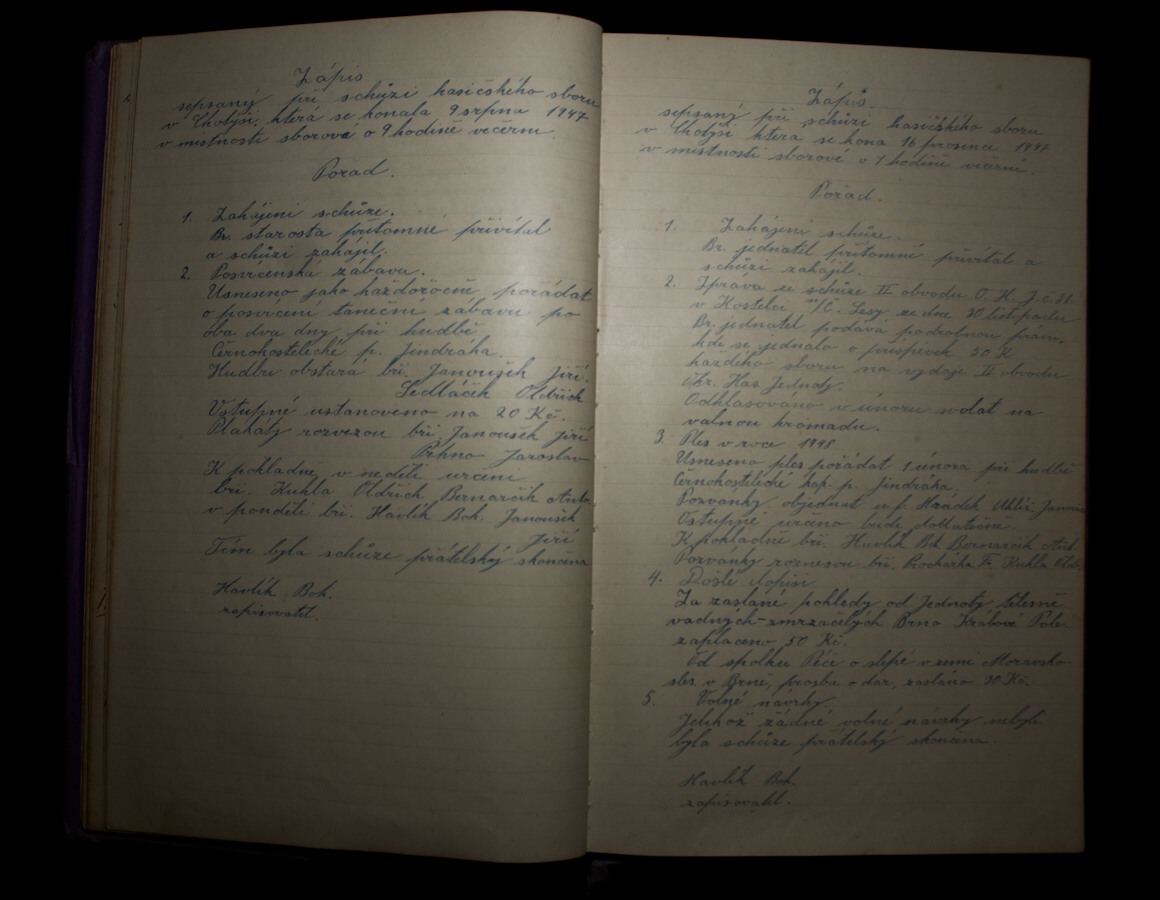 Zápis
sepsaný při schůzi hasičského sboru
v Chotýši, která se konala 9 srpna 1947
v místnosti sborové o 9 hodině večerní.
Pořad.
1. Zahájení schůze.
Br. starosta přítomné přivítal
a schůzi zahájil.
2. Posvícenská zábava.
Usneseno jako každoročně pořádat
o posvícení taneční zábavu po
oba dva dny při hudbě
Černokostelecké p. Jindráka.
Hudbu obstará bři. Janoušek Jiří.
Sedláček Oldřich
Vstupné ustanoveno na 20 Kč.
Plakáty rozvezou bři. Janoušek Jiří
Jaroslav
K pokladně, v neděli určeni
bři. Kuhla Oldřich Bernarčik Anto.
v pondělí bři. Havlík Boh. Janoušek
Jiří
Tím byla schůze přátelský skončena
Havlík Boh.
zapisovatel.
Zápis.
sepsaný při schůzi hasičského sboru
v Chotýši která se kona 16 prosince 1947
v místnosti sborové o 7 hodině večerní.
Pořad.
1. Zahájení schůze.
Br. jednatel přítomné přivítal a
schůzi zahájil.
2. Zpráva ze schůze II obvodu O. H. J. č. 21.
v Kostelci n/Č. Lesy ze dne 30 listopadu
Br. jednatel podává podrobnou zpráv.
kde se jednalo o příspěvek 50 K
každého sboru na výdaje II obvodu
Okr. Has Jednoty.
Odhlasováno v únoru svolat na
valnou hromadu.
3. Ples v roce 1948
Usneseno ples pořádat 1 února při hudbě
Černokostelecké kap. p. Jindráka.
Pozvánky objednat u f. Hrádek Uhlíř. Janov
Vstupné určeno bude dodatečně.
K pokladně bři. Havlík Boh. Bernarčik Ant.
Pozvánky roznesou bři. Procházka Fr. Kuhla Old.
4. Došlé dopisi
Za zaslané pohledy od Jednoty tělesně
vadných-zmrzačelých Brno Králové Pole.
zaplaceno 50 Kč.
Od spolku Péče o slepé v zemi Moravsko-
sles. v Brně, prosba o dar, zasláno 30 Kč.
5. Volné návrhy.
Jelikož žádné volné návrhy nebyli
byla schůze přátelský skončena.
Havlík Boh.
zapisovatel.